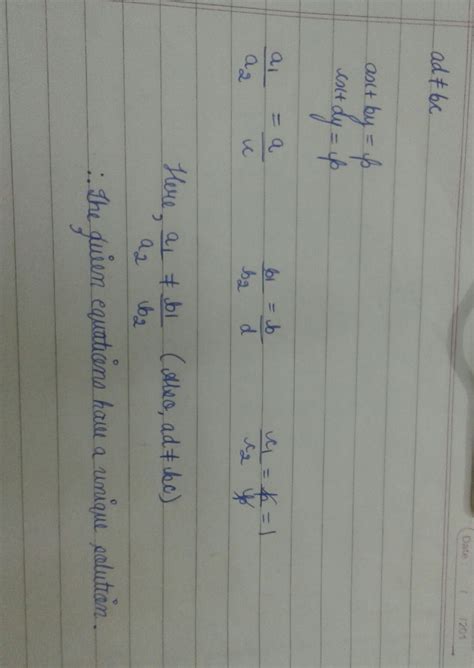 Date
ad ≠ bc
ax + by = p
cx + dy = p
a1/a2 = a/c b1/b2 = b/d c1/c2 = p/p = 1
Here, a1/a2 ≠ b1/b2 (Also, ad ≠ bc)
∴ The given equations have a unique solution.